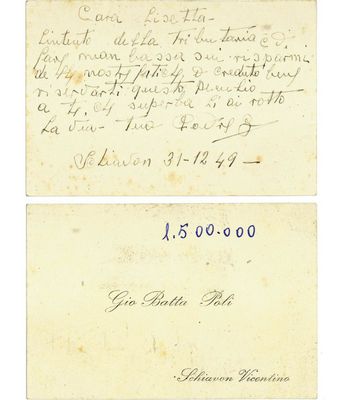 Cara Lisetta -
L'intento della tributaria è di
far man bassa sui risparmi
nostre fatiche o creduto ben
riservarti questo
a te che superba
la via - tuo Padre
Schiavon 31-12 49 -
l. 500.000
Gio Batta Poli
Schiavon Vicentino